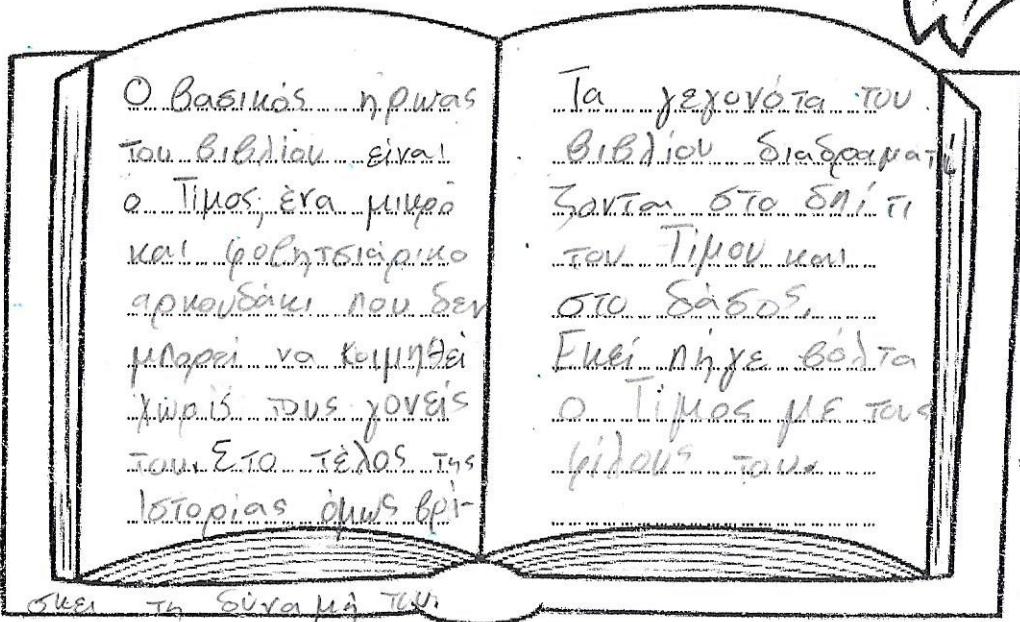 Ο βασικός ήρωας
του βιβλίου είναι
ο Τίμος, ένα μικρό
και φοβητσιάρικο
αρκουδάκι που δεν
μπορεί να κοιμηθεί
χωρίς τους γονείς
του. Στο τέλος της
Ιστορίας όμως βρί-
σκει τη δύναμή του.
Τα γεγονότα του
βιβλίου διαδραματί
ζονται στο σπίτι
του Τίμου και
στο δάσος.
Εκεί πήγε βόλτα
ο Τίμος με τους
φίλους του.